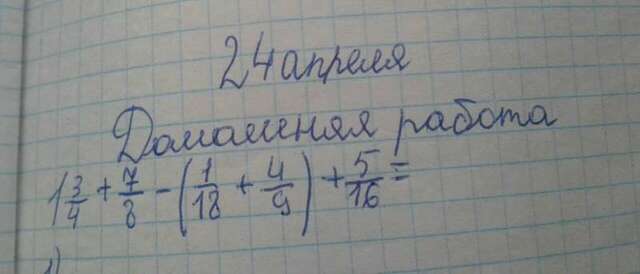 24 апреля
Домашняя работа
1 3/4 + 7/8 - (1/18 + 4/9) + 5/16 =
1)